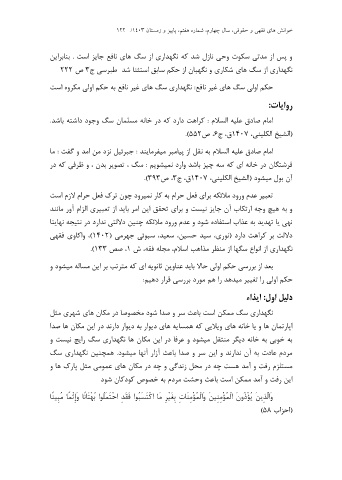 خوانش های فقهی و حقوقی، سال چهارم، شماره هفتم، پاییز و زمستان ۱۴۰۳/ ۱۲۲
و پس از مدتی سکوت وحی نازل شد که نگهداری از سگ های نافع جایز است . بنابراین
نگهداری از سگ های شکاری و نگهبان از حکم سابق استثنا شد طبرسی ج۳ ص ۲۲۲
حکم اولی سگ های غیر نافع: نگهداری سگ های غیر نافع به حکم اولی مکروه است
روایات:
امام صادق علیه السلام : کراهت دارد که در خانه مسلمان سگ وجود داشته باشد.
(الشیخ الکلینی، ۱۴۰۷ق، ج۶، ص۵۵۲).
امام صادق علیه السلام به نقل از پیامبر میفرمایند : جبرئیل نزد من امد و گفت : ما
فرشتگان در خانه ای که سه چیز باشد وارد نمیشویم : سگ ، تصویر بدن ، و ظرفی که در
آن بول میشود (الشیخ الکلینی، ۱۴۰۷ق، ج۳، ص۳۹۳).
تعبیر عدم ورود ملائکه برای فعل حرام به کار نمیرود چون ترک فعل حرام لازم است
و به هیچ وجه ارتکاب آن جایز نیست و برای تحقق این امر باید از تعبیری الزام آور مانند
نهی یا تهدید به عذاب استفاده شود و عدم ورود ملائکه چنین دلالتی ندارد در نتیجه نهایتا
دلالت بر کراهت دارد (نوری، سید حسین، سعید، سبوئی جهرمی (۱۴۰۲)، واکاوی فقهی
نگهداری از انواع سگها از منظر مذاهب اسلام، مجله فقه، ش ۱، صص ۱۳۳).
بعد از بررسی حکم اولی حالا باید عناوین ثانویه ای که مترتب بر این مساله میشود و
حکم اولی را تغییر میدهد را هم مورد بررسی قرار دهیم:
دلیل اول: ایذاء
نگهداری سگ ممکن است باعث سر و صدا شود مخصوصا در مکان های شهری مثل
اپارتمان ها و یا خانه های ویلایی که همسایه های دیوار به دیوار دارند در این مکان ها صدا
به خوبی به خانه دیگر منتقل میشود و عرفا در این مکان ها نگهداری سگ رایج نیست و
مردم عادت به آن ندارند و این سر و صدا باعث آزار آنها میشود. همچنین نگهداری سگ
مستلزم رفت و آمد هست چه در محل زندگی و چه در مکان های عمومی مثل پارک ها و
این رفت و آمد ممکن است باعث وحشت مردم به خصوص کودکان شود
وَالَّذِينَ يُؤْذُونَ الْمُؤْمِنِينَ وَالْمُؤْمِنَاتِ بِغَيْرِ مَا اكْتَسَبُوا فَقَدِ احْتَمَلُوا بُهْتَانًا وَإِثْمًا مُبِينًا
(احزاب ۵۸)